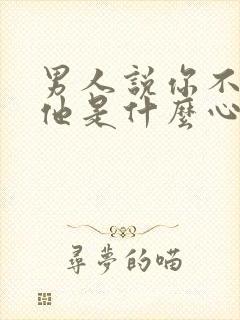 男人説你不
他是什麼心
尋夢的喵